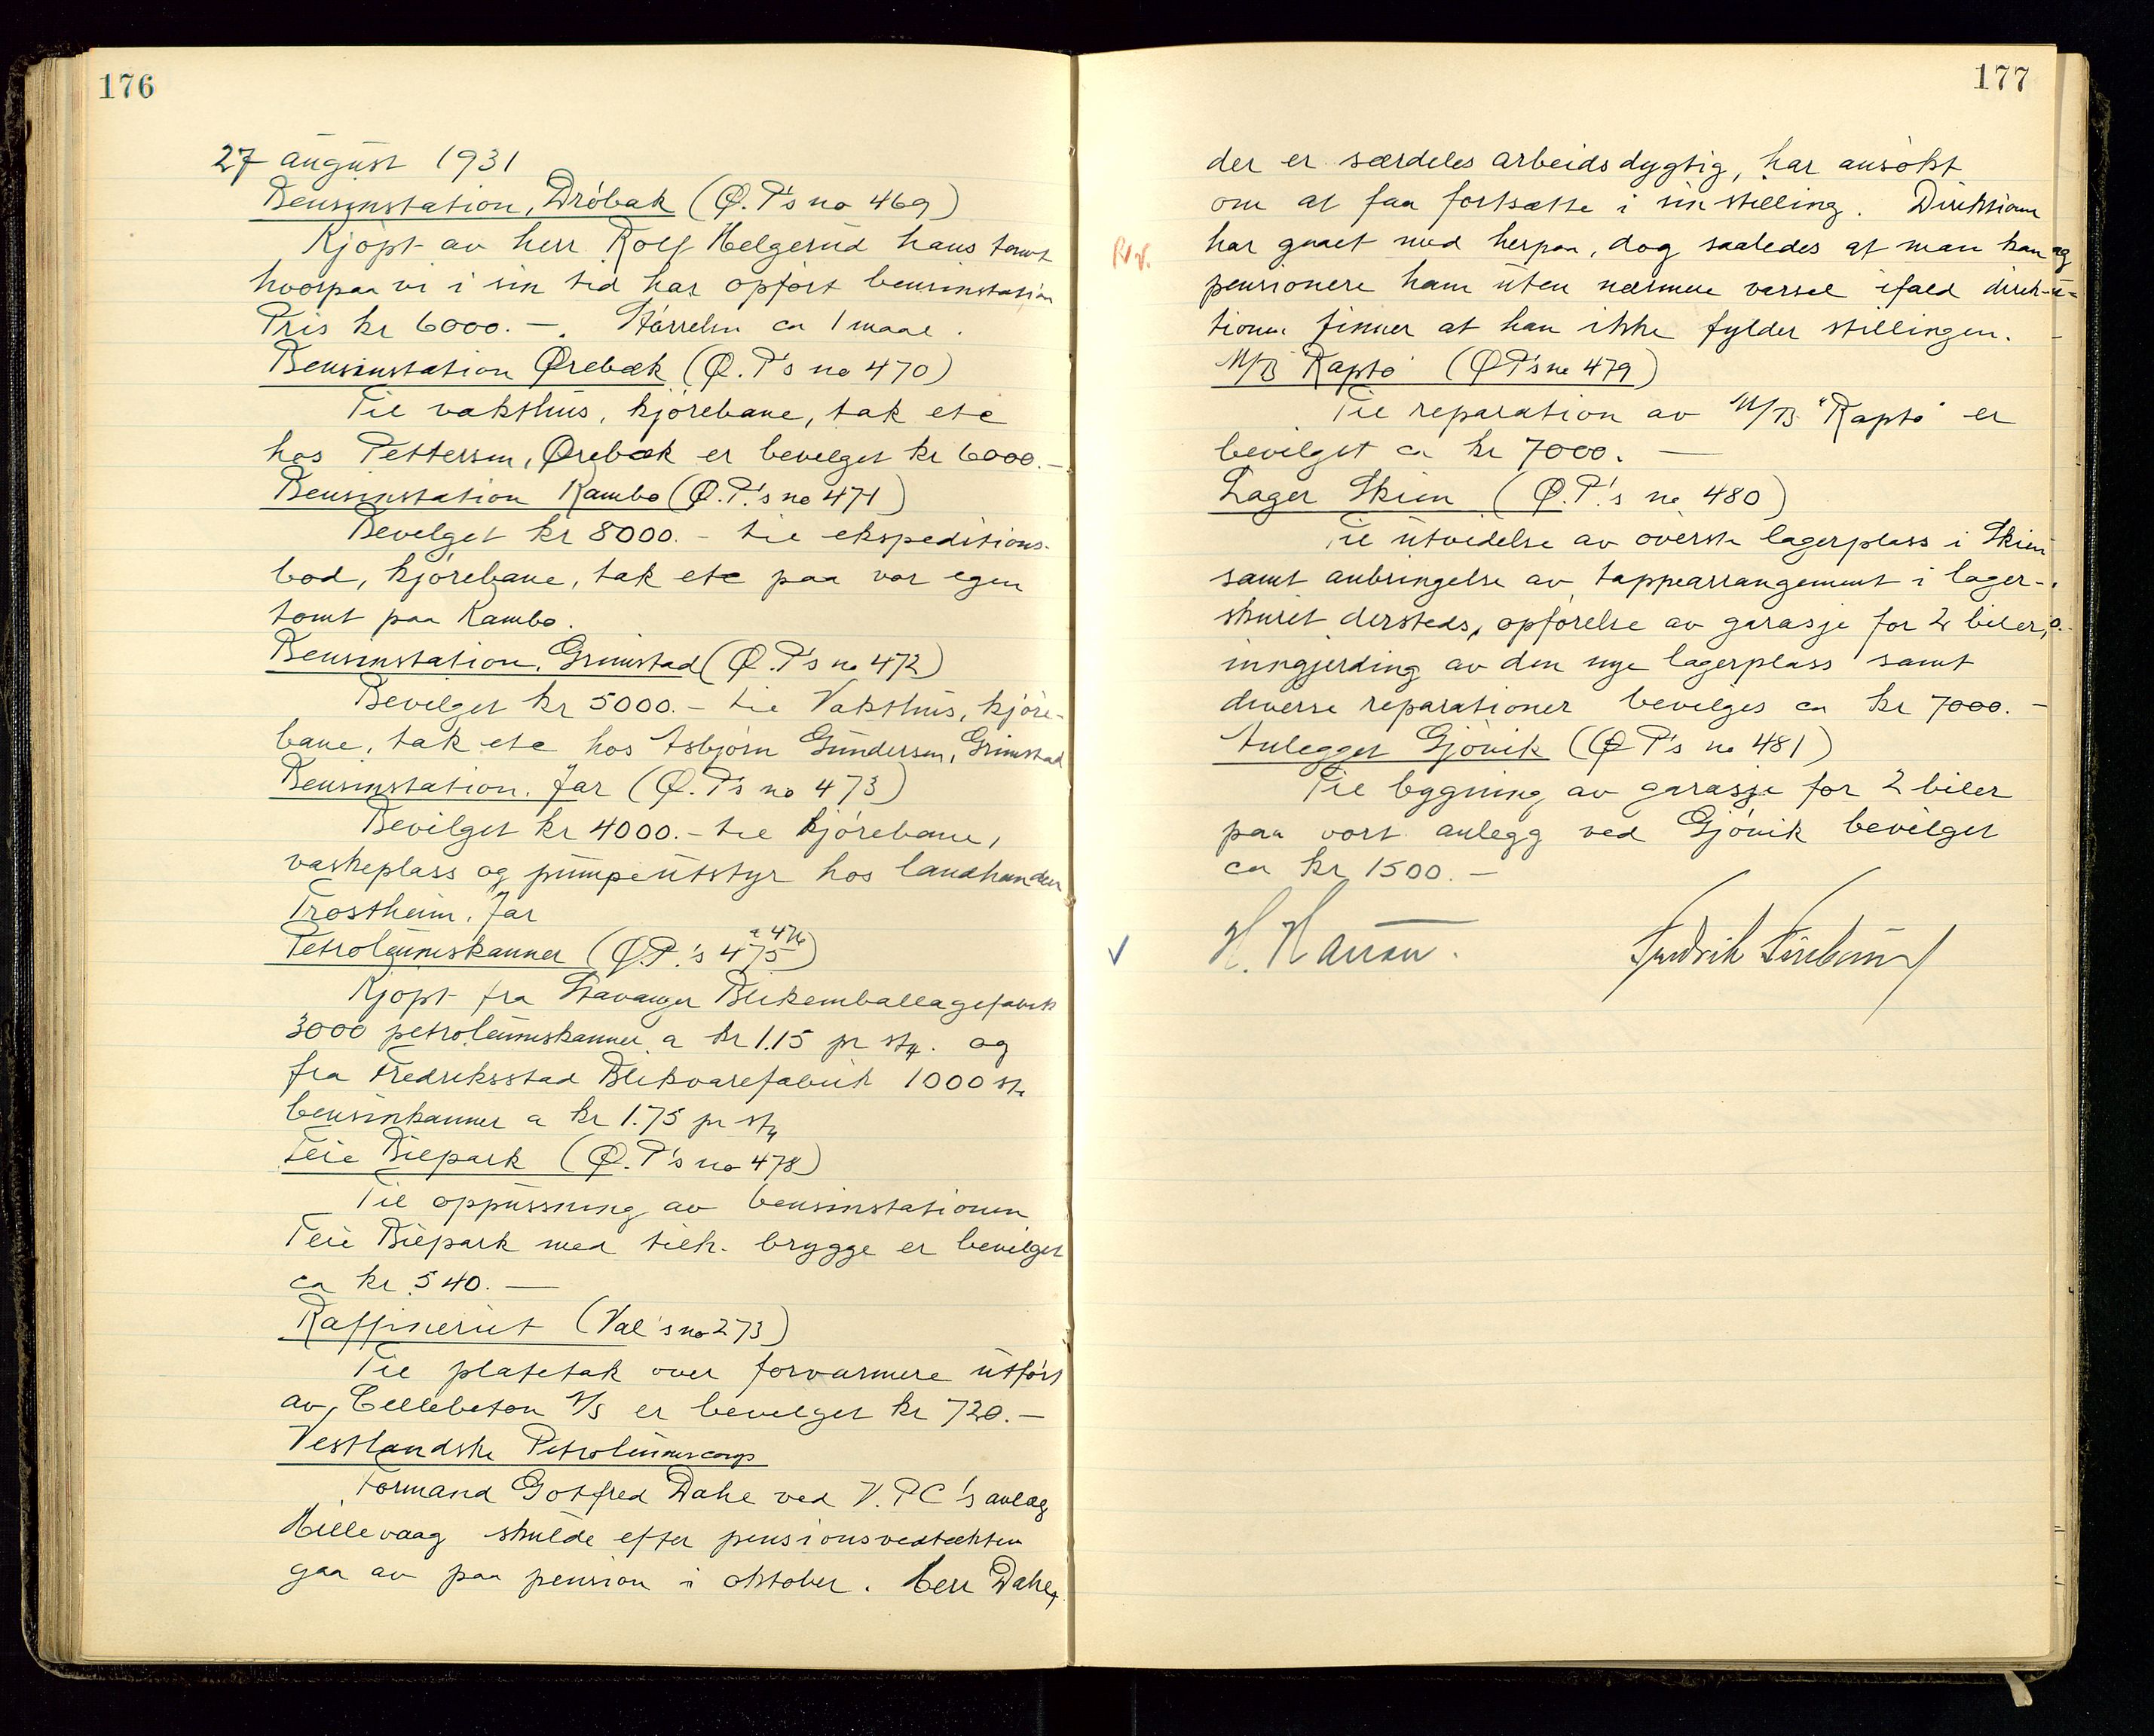 176
27 august 1931
Bensinstation, Dröbak (Ø.P.'s no 469)
Kjöpt av herr Rolf Helgerud hans tomt
hvorpaa vi i sin tid har opfört bensinstasjon
Pris kr 6000.—. Störrelse ca 1 maal.
Bensinstation Ørebæk (Ø.P.'s no 470)
Til vakthus, kjörebane, tak etc
hos Pettersen, Ørebæk er bevilget kr 6000.—
Bensinstation Kambo (Ø.P.'s no 471)
Bevilget kr 8000.— til ekspeditions-
bod, kjörebane, tak etc paa vor egen
tomt paa Kambo.
Bensinstation, Grimstad (Ø.P.'s no 472)
Bevilget kr 5000.— til Vakthus, kjöre-
bane, tak etc hos Asbjörn Gundersen, Grimstad
Bensinstation, Jar (Ø.P.'s no 473)
Bevilget kr 4000.— til kjörebane,
vaskeplass og pumpeutstyr hos landhandler
Trostheim, Jar
Petroleumskanner (Ø.P.'s 475 a 476)
Kjöpt fra Stavanger Blikemballagefabrik
3000 petroleumskanner a kr 1.15 pr stk. og
fra Fredriksstad Blikvarefabrik 1000 stk
bensinkanner a kr 1.75 pr stk
Teie Bilpark (Ø.P.'s no 478)
Til oppussning av bensinstationen
Teie Bilpark med tilh. brygge er bevilget
ca kr 540.—
Raffineriet (Val's no 273)
Til platetak over forvarmere utfört
av Cellebeton A/S er bevilget kr 720.—
Vestlandske Petroleumscomp
Formand Gotfred Dahl ved V.P.C's anlæg
Hillevaag skulde efter pensionsvedtækten
gaa av paa pension i oktober. Herr Dahl,
177
der er særdeles arbeidsdygtig, har ansökt
om at faa fortsætte i sin stilling. Direktionen
har gaaet med herpaa, dog saaledes at man kan
pensionere ham uten nærmere varsel ifald direk-
tionen finner at han ikke fylder stillingen.
M/B Raptö (ØP's no 479)
Til reparation av M/B "Raptö" er
bevilget ca kr 7000.—
Lager Skien (Ø.P.'s no 480)
Til utvidelse av överste lagerplass i Skien
samt anbringelse av tappearrangement i lager-
skuret dersteds, opförelse av garasje for 2 biler,
inngjerding av den nye lagerplass samt
diverse reparationer bevilges ca kr 7000.—
Anlegget Gjövik (ØP's no 481)
Til bygning av garasje for 2 biler
paa vort anlegg ved Gjövik bevilget
ca kr 1500.—